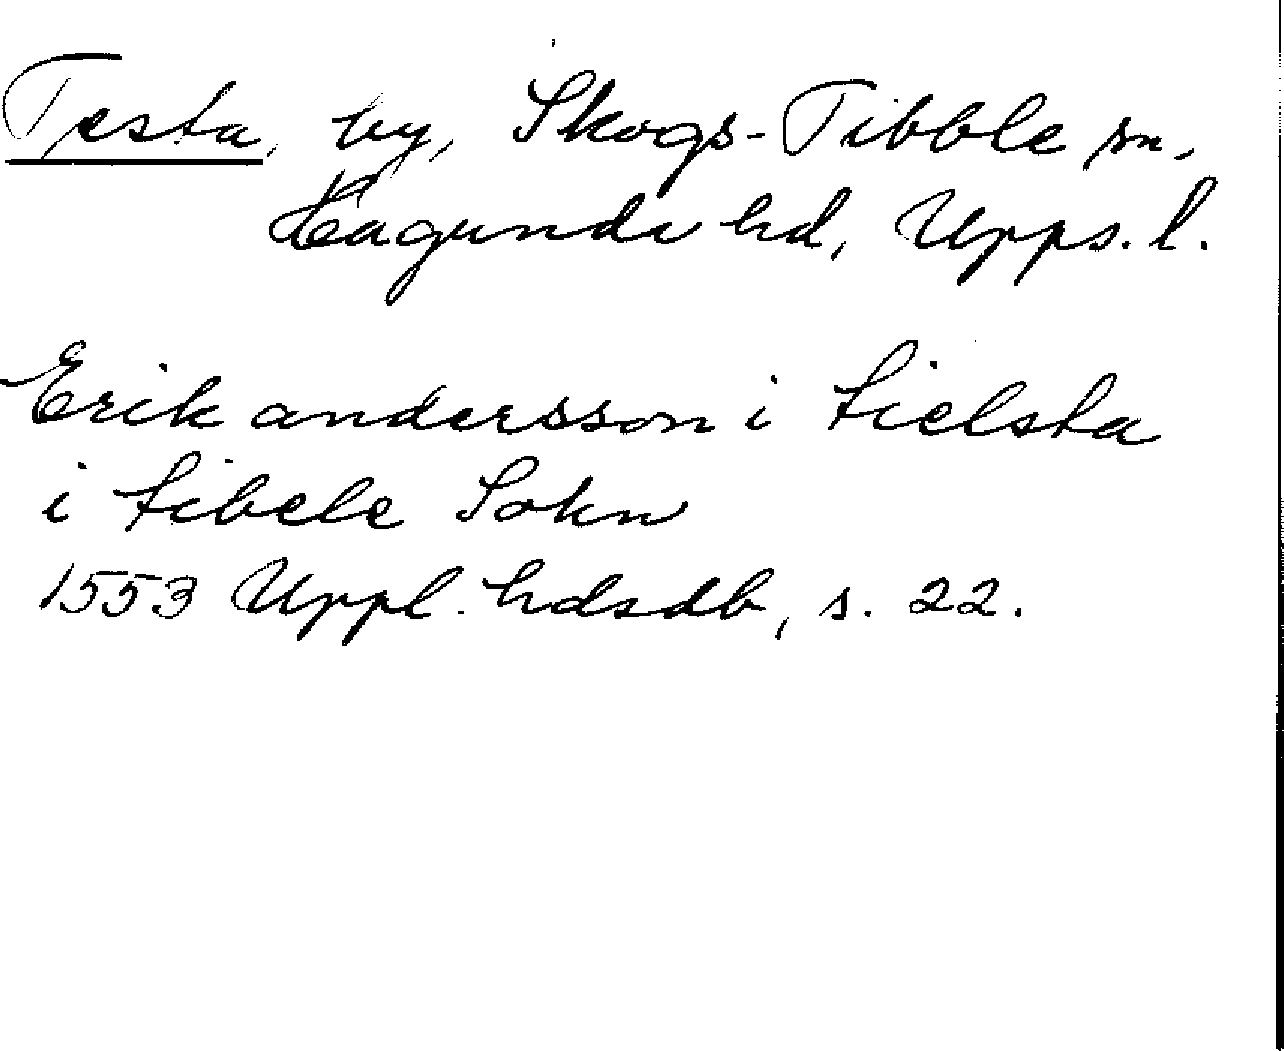 Testa, by, Skogs-Tibble sn,
Hagunda hd, Upps. l.
Erik andersson i tielsta
i tibele Sokn
1553 Uppl. hdsdb, s. 22.